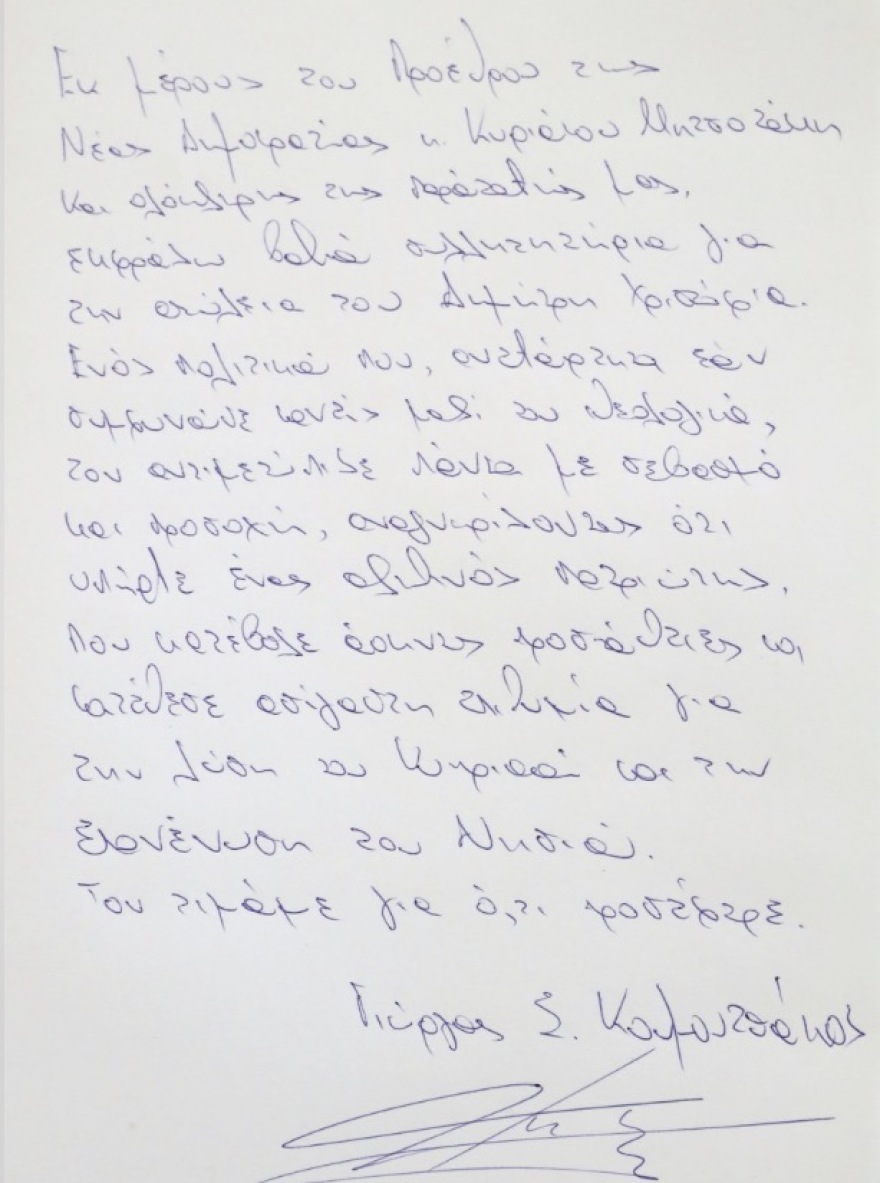 Εκ μέρους του Προέδρου της
Νέας Δημοκρατίας κ. Κυριάκου Μητσοτάκη
και ολόκληρης της παράταξής μας,
εκφράζω βαθιά συλλητητήρια για
την απώλεια του Δημήτρη Χριστόφια.
Ενός πολιτικού που, ανεξάρτητα εάν
συμφωνούσε κανείς μαζί του ιδεολογικά,
τον αντιμετώπιζε πάντα με σεβασμό
και προσοχή, αναγνωρίζοντας ότι
υπήρξε ένας αληθινός πατριώτης,
που κατέβαλε άοκνες προσπάθειες και
κατέθεσε ασίγαστη επιθυμία για
την λύση του Κυπριακού και την
επανένωση του Νησιού.
Τον τιμάμε για ό,τι προσέφερε.
Γιώργος Σ. Κουμουτσάκος